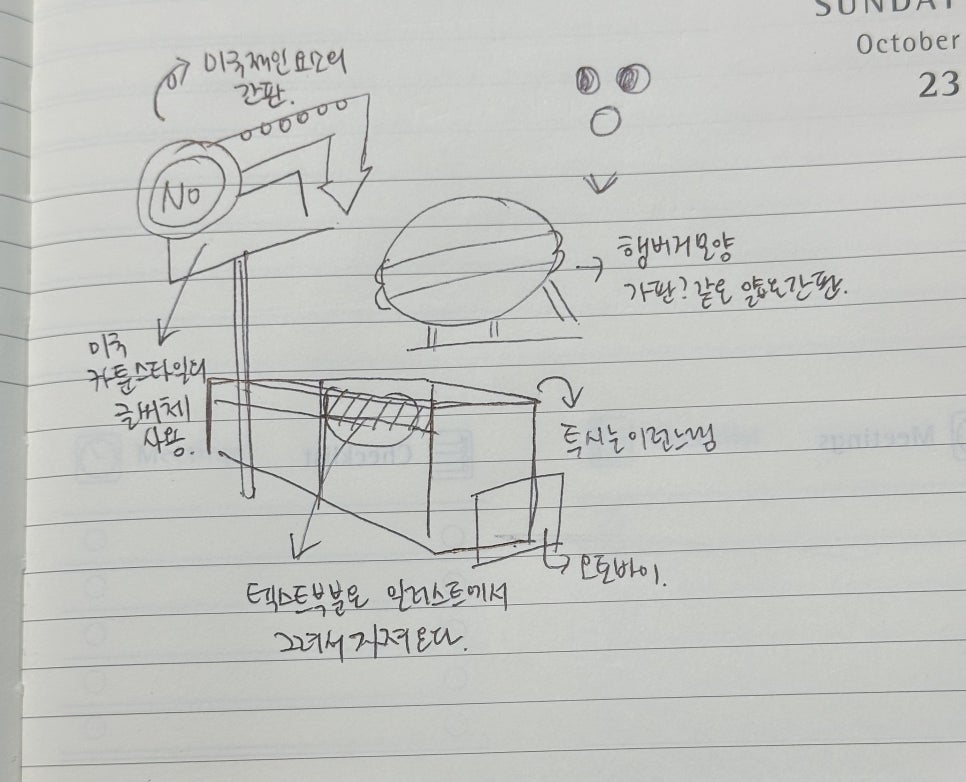 SUNDAY
October
23
미국적인 요소의
간판.
No
햄버거모양
가판? 같은 얇은간판.
미국
카툰스타일의
글씨체
사용.
투시는 이런느낌
오토바이.
텍스트부분은 일러스트에서
그려서 가져온다.
Meetings
Checklist